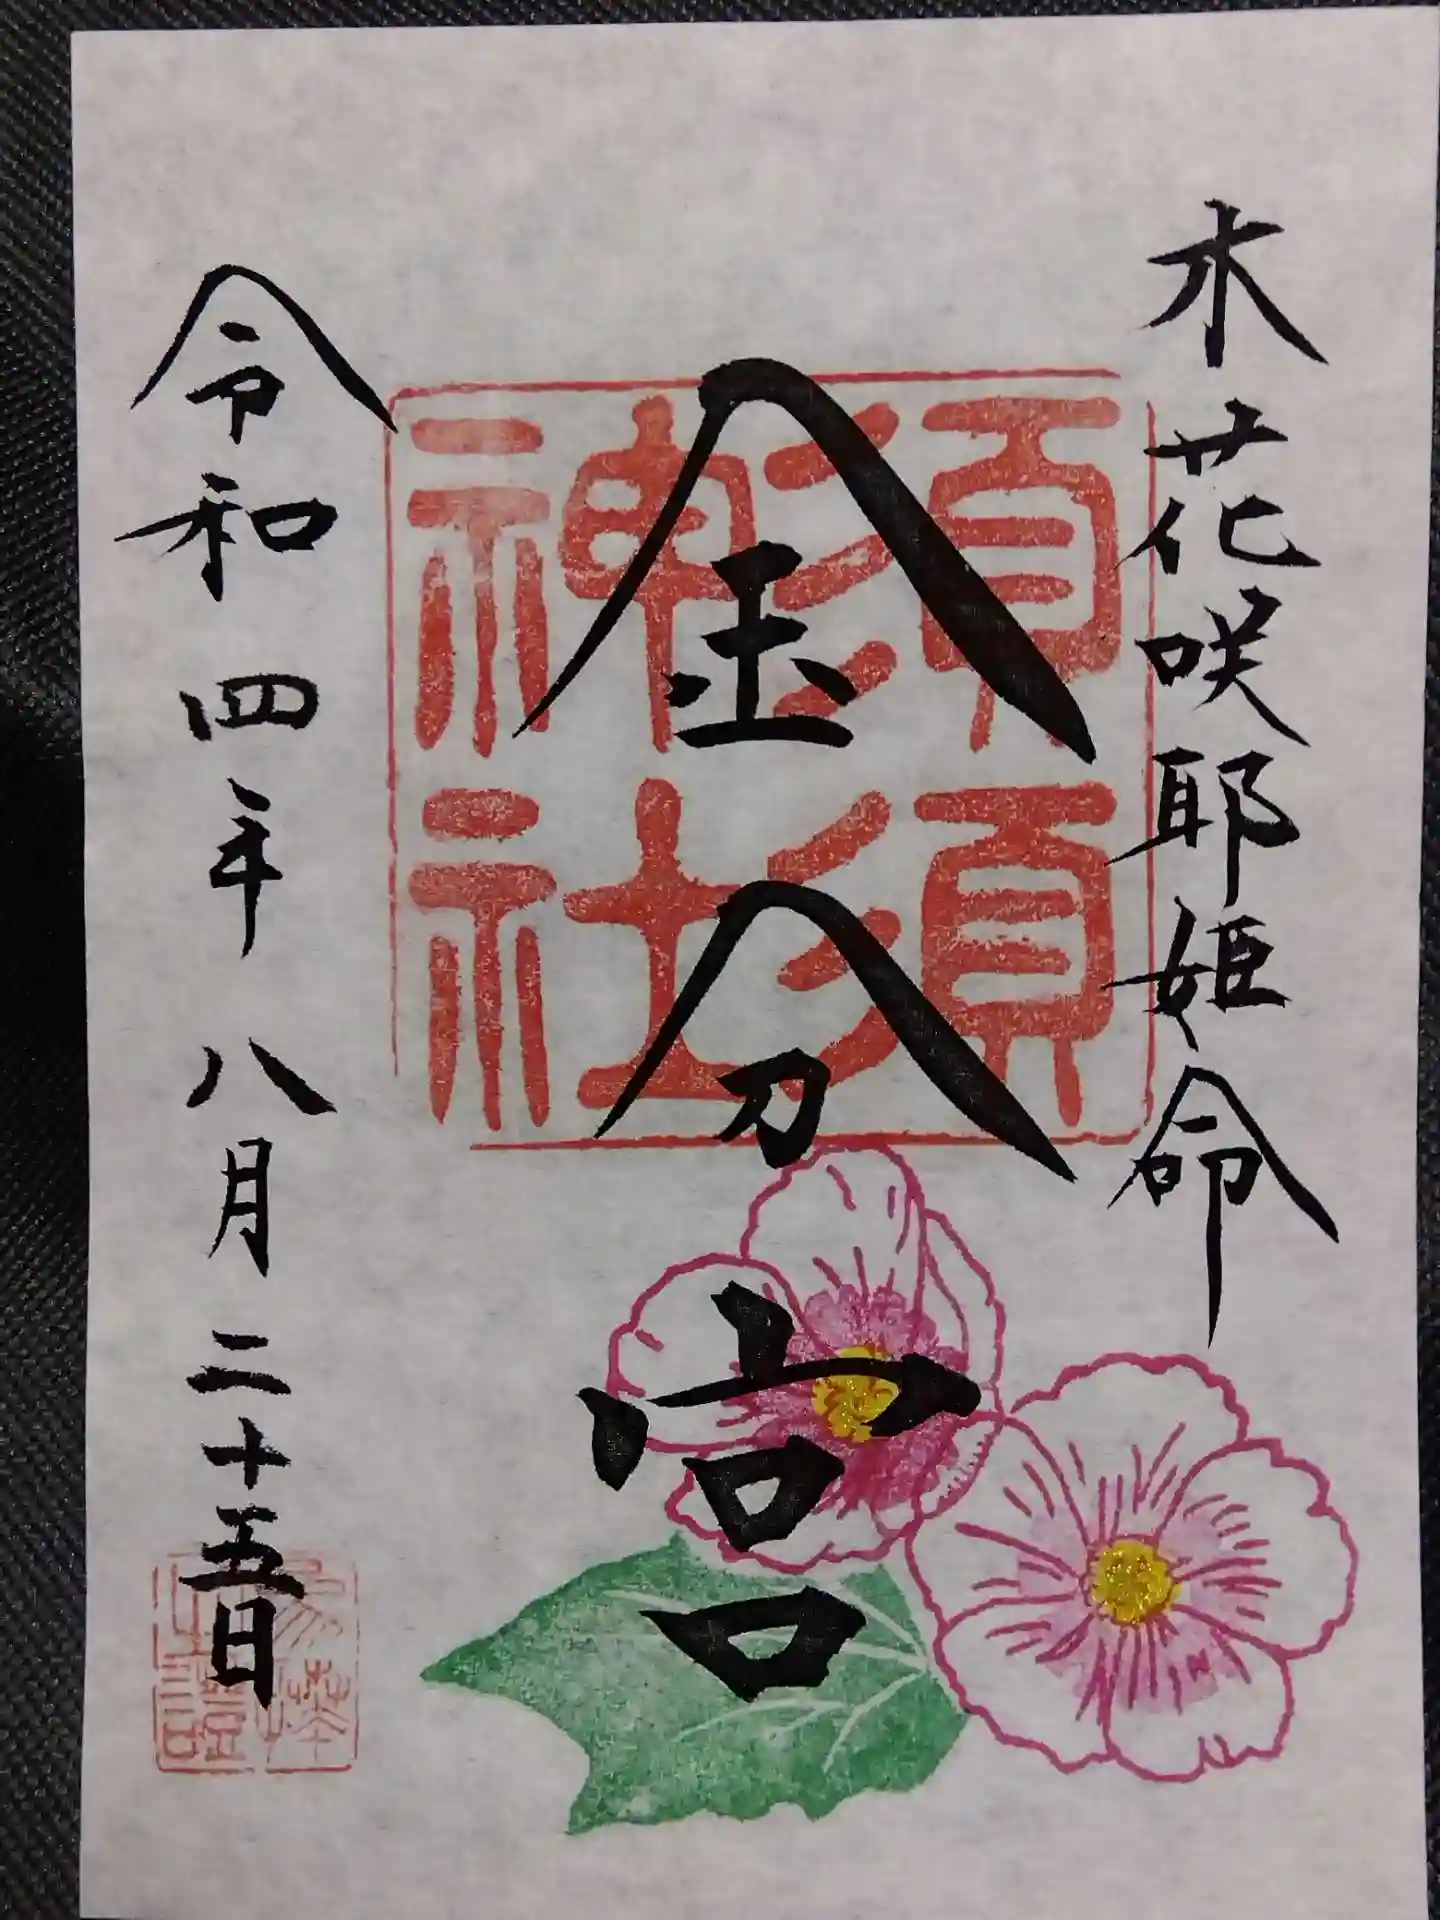 木花咲耶姫命
金分宮
須須
神社
令和四年八月二十五日